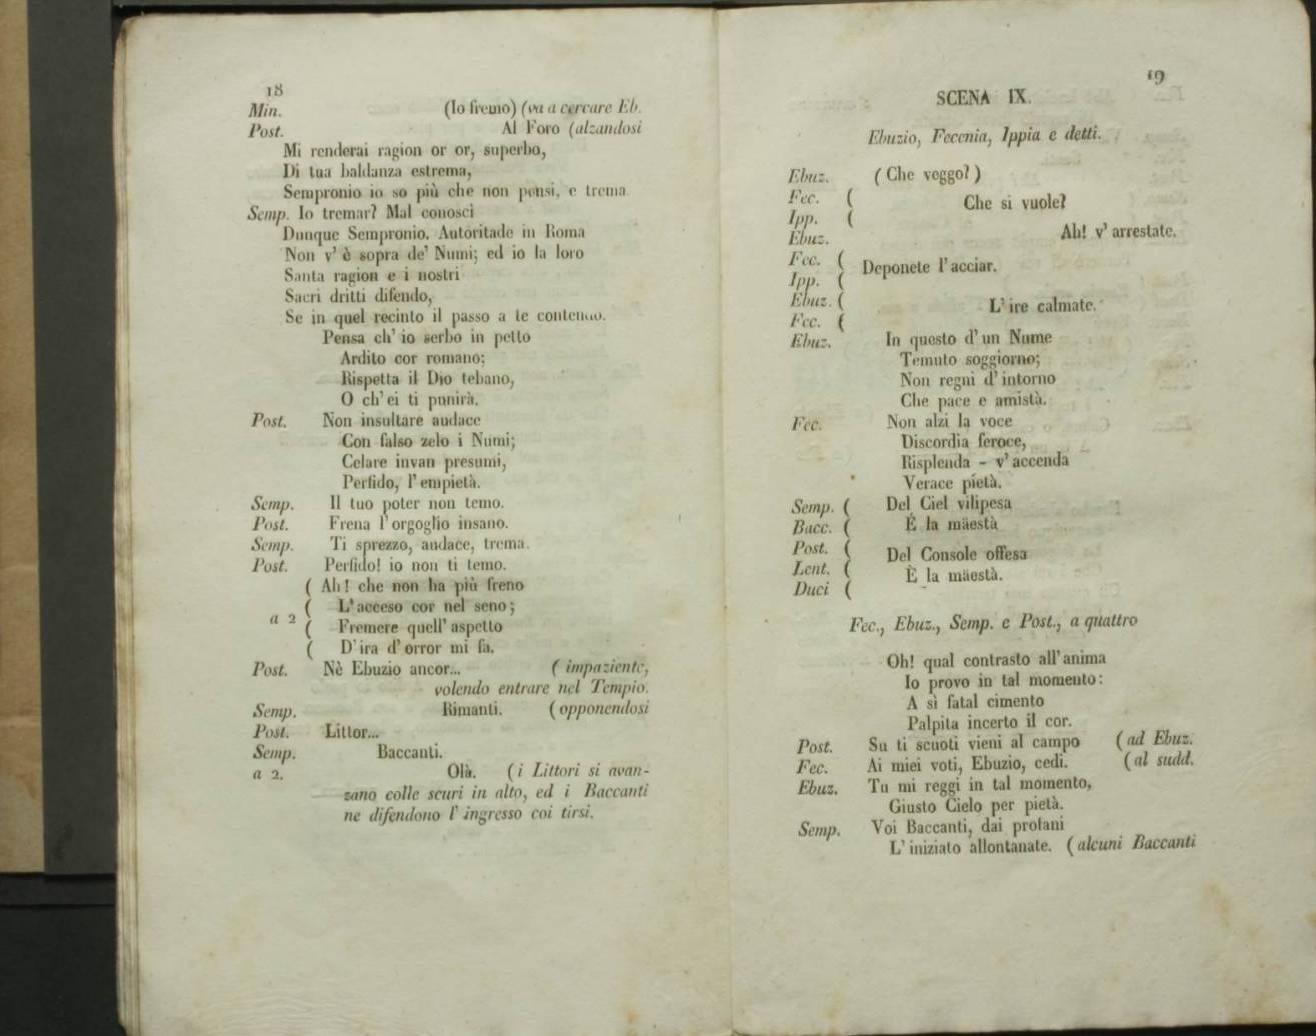 18
Min. (Io fremo) (va a cercare Eb.
Post. Al Foro (alzandosi
Mi renderai ragion or or, superbo,
Di tua baldanza estrema,
Sempronio io so più che non pensi, e trema.
Semp. Io tremar? Mal conosci
Dunque Sempronio. Autoritade in Roma
Non v' è sopra de' Numi; ed io la loro
Santa ragion e i nostri
Sacri dritti difendo,
Se in quel recinto il passo a te contendo.
Pensa ch' io serbo in petto
Ardito cor romano;
Rispetta il Dio tebano,
O ch' ei ti punirà.
Post. Non insultare audace
Con falso zelo i Numi;
Celare invan presumi,
Perfido, l' empietà.
Semp. Il tuo poter non temo.
Post. Frena l' orgoglio insano.
Semp. Ti sprezzo, audace, trema.
Post. Perfido! io non ti temo.
( Ah! che non ha più freno
( L' acceso cor nel seno;
a 2
( Fremere quell' aspetto
( D' ira d' orror mi fa.
Post. Nè Ebuzio ancor... ( impaziente,
volendo entrare nel Tempio.
Semp. Rimanti. ( opponendosi
Post. Littor...
Semp. Baccanti.
a 2. Olà. (i Littori si avan-
zano colle scuri in alto, ed i Baccanti
ne difendono l' ingresso coi tirsi.
19
SCENA IX.
Ebuzio, Fecenia, Ippia e detti.
Ebuz. ( Che veggo? )
Fec. (
Che si vuole?
Ipp. (
Ebuz. Ah! v' arrestate.
Fec. (
Deponete l' acciar.
Ipp. (
Ebuz. (
L' ire calmate.
Fec. (
Ebuz. In questo d' un Nume
Temuto soggiorno;
Non regni d' intorno
Che pace e amistà.
Fec. Non alzi la voce
Discordia feroce,
Risplenda - v' accenda
Verace pietà.
Semp. ( Del Ciel vilipesa
Bacc. ( É la mäestà
Post. (
Del Console offesa
Lent. (
È la mäestà.
Duci (
Fec., Ebuz., Semp. e Post., a quattro
Oh! qual contrasto all' anima
Io provo in tal momento:
A sì fatal cimento
Palpita incerto il cor.
Post. Su ti scuoti vieni al campo ( ad Ebuz.
Fec. Ai miei voti, Ebuzio, cedi. (al sudd.
Ebuz. Tu mi reggi in tal momento,
Giusto Cielo per pietà.
Semp. Voi Baccanti, dai profani
L' iniziato allontanate. ( alcuni Baccanti